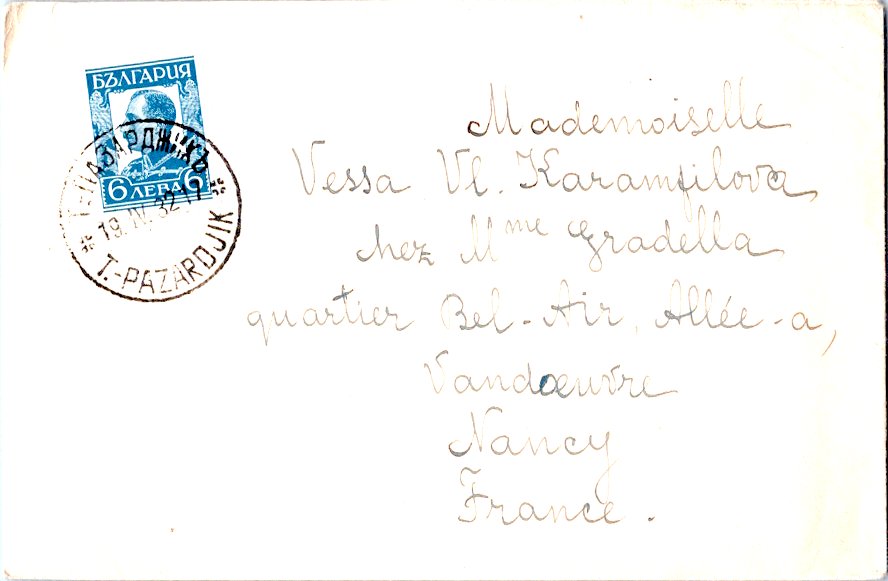 БЪЛГАРИЯ
6 ЛЕВА 6
Т.-ПАЗАРДЖИКЪ
19.IV.32.17
T.-PAZARDJIK
Mademoiselle
Vessa Vl. Karamfilova,
chez Mme Gradella
quartier Bel-Air, Allée-a,
Vandœuvre
Nancy
France.